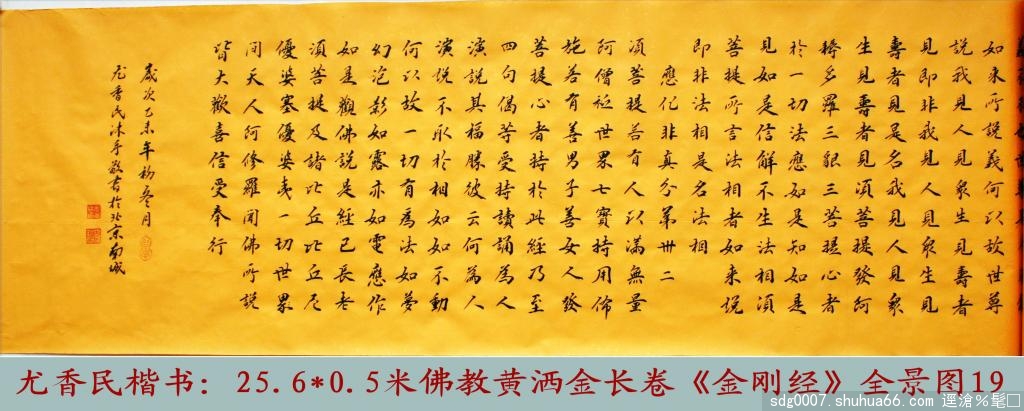 如来所説義何以故世尊
説我見人見衆生見壽者
見即非我見人見衆生見
壽者見是名我見人見衆
生見壽者見須菩提發阿
耨多羅三藐三菩提心者
於一切法應如是知如是
見如是信解不生法相須
菩提所言法相者如来説
即非法相是名法相
應化非真分第卅二
須菩提若有人以滿無量
阿僧祇世界七寶持用佈
施若有善男子善女人發
菩提心者持於此經乃至
四句偈等受持讀誦為人
演説其福勝彼云何為人
演説不取於相如如不動
何以故一切有為法如夢
幻泡影如露亦如電應作
如是觀佛説是經已長老
須菩提及諸比丘比丘尼
優婆塞優婆夷一切世界
間天人阿修羅聞佛所説
皆大歡喜信受奉行
歲次乙未年初冬月
尤香民沐手敬書於北京南城
尤香民楷书：25.6*0.5米佛教黄洒金长卷《金刚经》全景图19
sdg0007.shuhua66.com 逕滄%髦